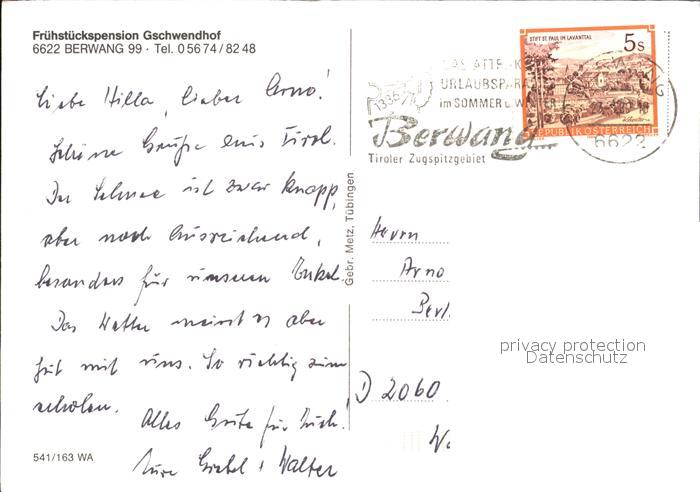 Frühstückspension Gschwendhof
6622 BERWANG 99 · Tel. 0 56 74 / 82 48
Liebe Hilla, lieber Arno!
Schöne Grüße aus Tirol.
Der Schnee ist zwar knapp,
aber noch ausreichend,
besonders für unseren Enkel.
Das Wetter meint es aber
gut mit uns. So richtig zum
erholen.
Alles Gute für Euch!
Eure Gretel + Walter
541/163 WA
Gebr. Metz, Tübingen
STIFT ST. PAUL IM LAVANTTAL
5s
REPUBLIK ÖSTERREICH
URLAUBSPARA
im SOMMER u. W
Berwang
Tiroler Zugspitzgebiet
6622
Herrn
Arno
Berl.
D 2060
privacy protection
Datenschutz